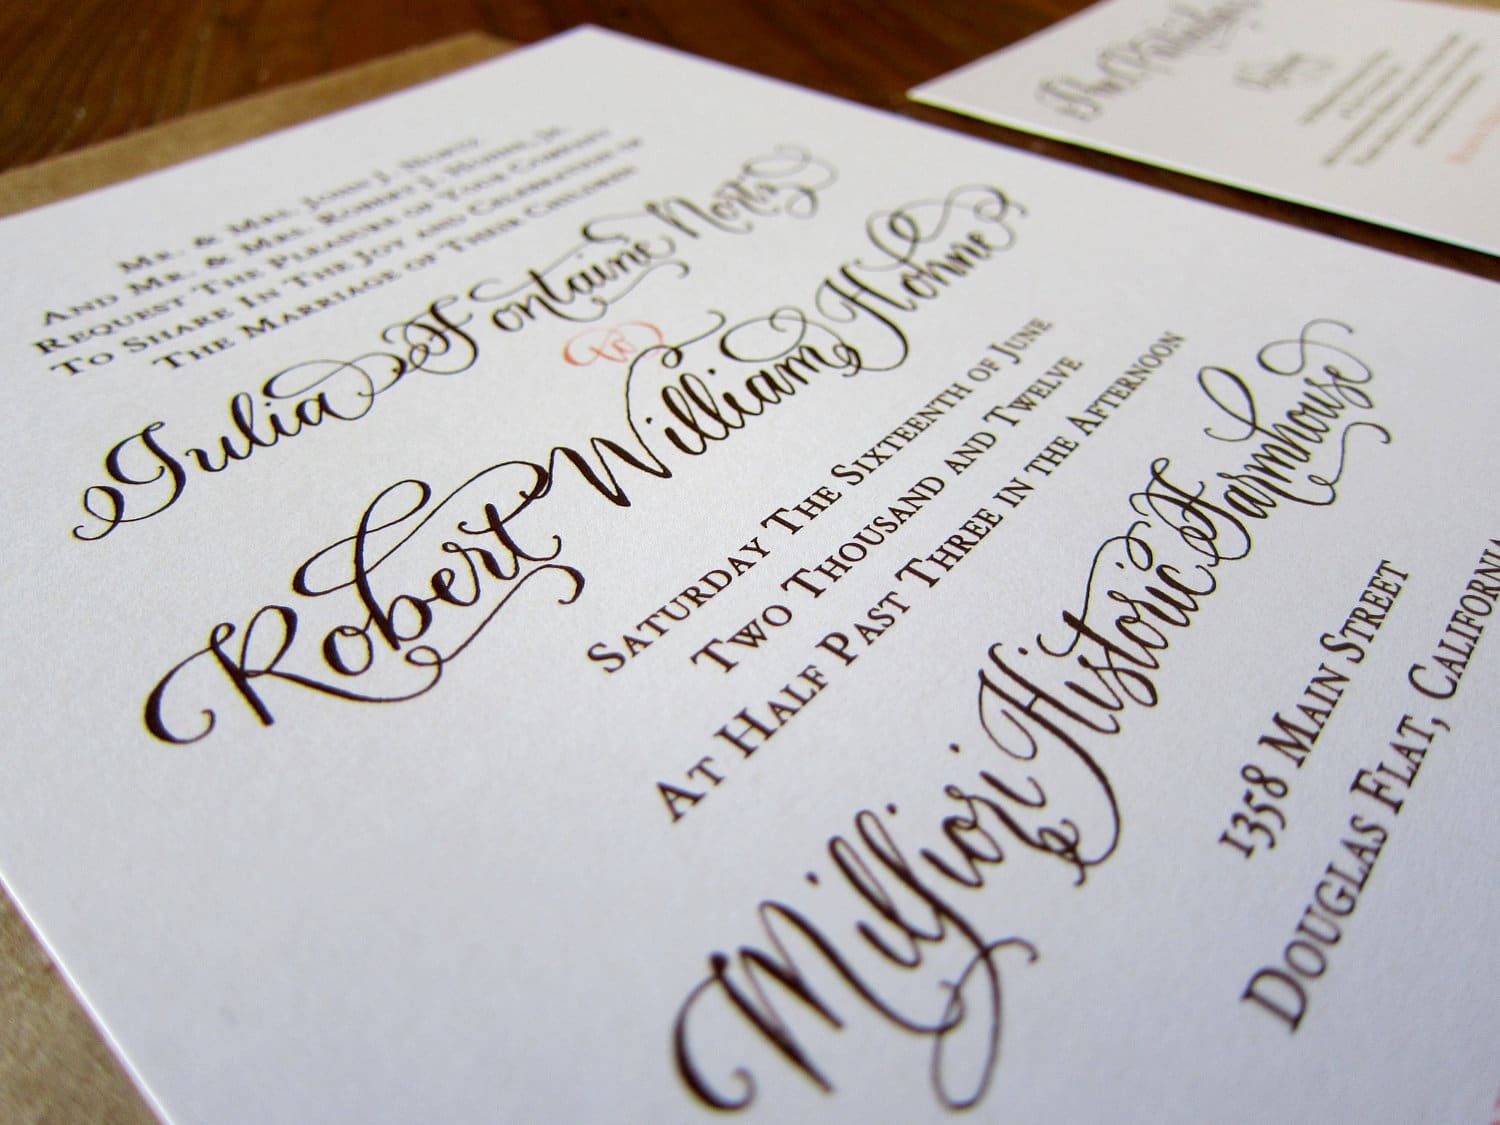 Mr. & Mrs. John J. Nortz
And Mr. & Mrs. Robert J. Hohne, Jr.
Request The Pleasure of Your Company
To Share In The Joy and Celebration of
The Marriage of Their Children
Julia Fontaine Nortz
to
Robert William Hohne
Saturday The Sixteenth of June
Two Thousand and Twelve
At Half Past Three in the Afternoon
Milliori Historic Farmhouse
1358 Main Street
Douglas Flat, California